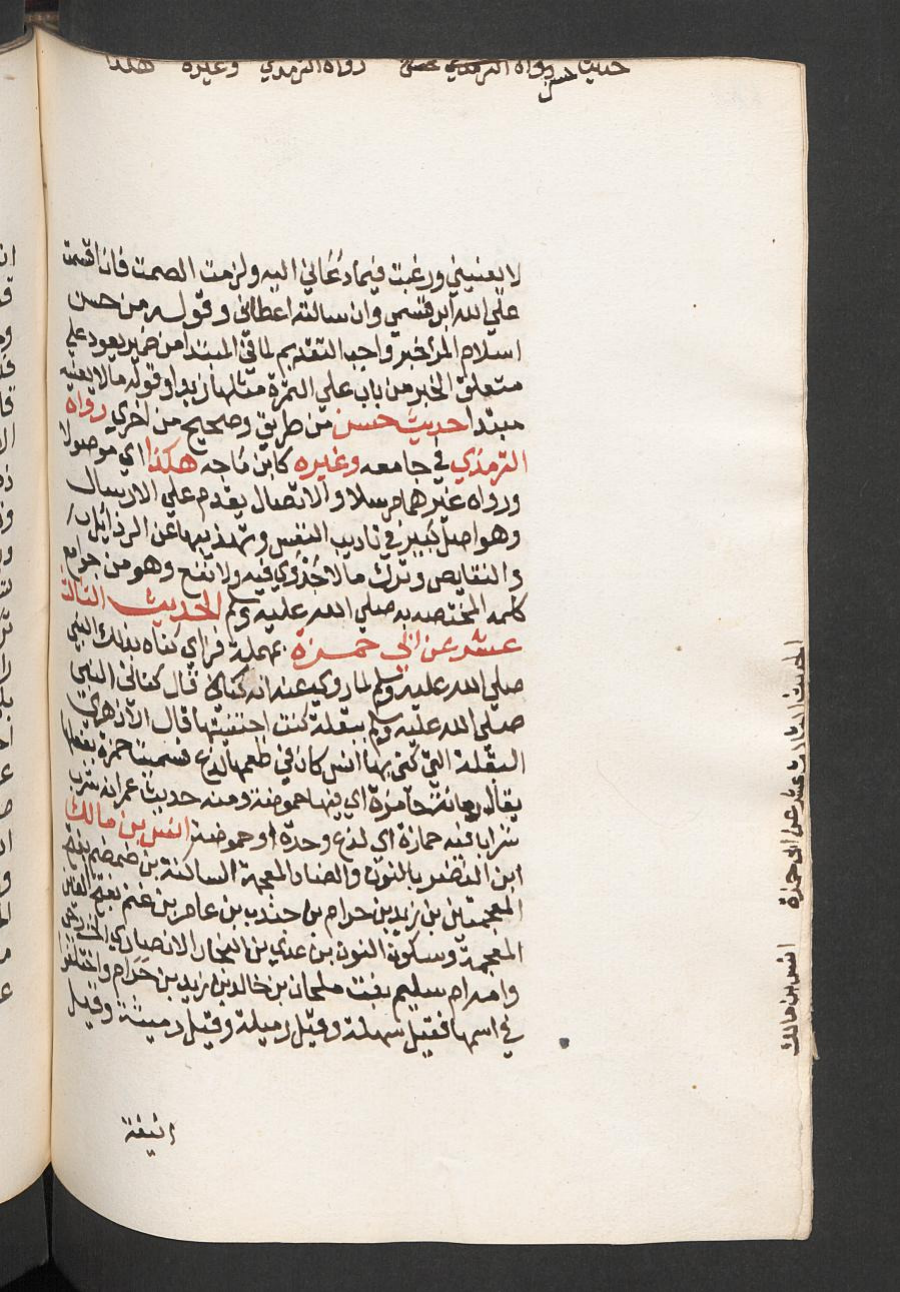 حديث حسن رواه الترمذي رواه الترمذي وغيره هكذا
لا يعنيني ورغبت فيما دعاني اليه ولزمت الصمت فان اقسمت
علي الله ابر قسمي وان سالته اعطاني وقوله من حسن
اسلام المرأ خبر واجب التقديم لما في المبتدا من ضمير يعود علي
متعلق الخبر من باب علي التمرة مثلها زبدا وقوله ما لا يعنيه
مبتدا حديث حسن من طريق وصحيح من اخري رواه
الترمذي في جامعه وغيره كابن ماجه هكذا اي موصولا
ورواه غيرهما مرسلا والاتصال يقدم علي الارسال
وهو اصل كبير في تاديب النفس وتهذيبها عن الرذايل
والنقايص وترك ما لا جدوي فيه ولا نفع وهو من جوامع
كلمه المختصه به صلي الله عليه وسلم الحديث الثالث
عشر عن ابي حمزة بمهملة فزاي كناه بذلك النبي
صلي الله عليه وسلم لما روي عنه انه قال كناني النبي
صلي الله عليه وسلم ببقلة كنت اجتنيتها قال الازهري
البقلة التي كني بها انس كان في طعمها لذع فسميت حمزة بفعلها
يقال رمانة حامزة اي فيها حموضة ومنه حديث عمر انه شرب
شرابا فيه حمازة اي لذع وحدة او حموضة انس بن مالك
ابن النضر بالنون والضاد المعجمة الساكنة بن ضمضم بفتح
المعجمتين بن زيد بن حرام بن جندب بن عامر بن غنم بفتح الغين
المعجمة وسكون النون بن عدي بن النجار الانصاري الخزرجي
وامه ام سليم بنت ملحان بن خالد بن زيد بن حرام واختلفوا
في اسمها فقيل سهلة وقيل رميلة وقيل رميثة وقيل
انيفة
الحديث الثالث عشر عن ابي حمزة انس بن مالك